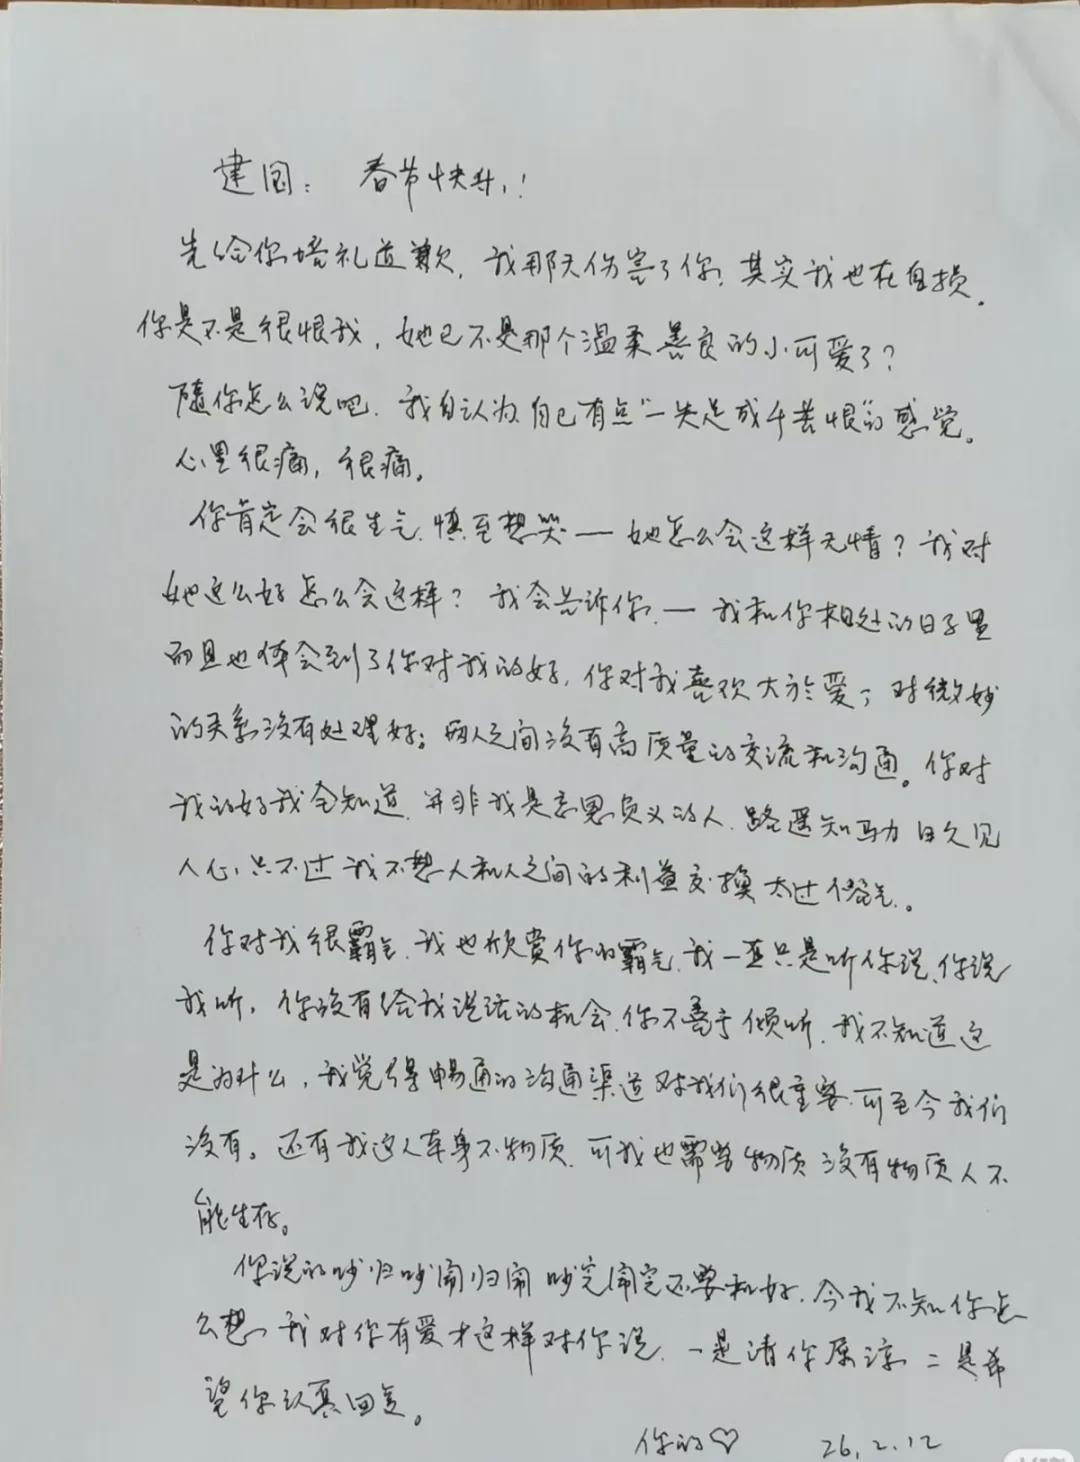 建国： 春节快乐！
先给你培礼道歉，我那天伤害了你，其实我也在自损。
你是不是很恨我，她已不是那个温柔善良的小可爱了？
随你怎么说吧，我自认为自己有点“一失足成千苦恨”的感觉。
心里很痛，很痛。
你肯定会很生气，慎至想哭——她怎么会这样无情？我对
她这么好怎么会这样？我会告诉你，——我和你相处的日子里
而且也体会到了你对我的好，你对我喜欢大於爱，对微妙
的关系没有处理好；两人之间没有高质量的交流和沟通。你对
我的好我全知道，并非我是忘恩负义的人，路遥知马力日久见
人心，只不过我不想人和人之间的利益交换太过俗气。
你对我很霸气，我也欣赏你的霸气，我一直只是听你说，你说
我听，你没有给我说话的机会，你不善于倾听，我不知道这
是为什么，我觉得畅通的沟通渠道对我们很重要，可至今我们
没有。还有我这人本身不物质，可我也需要物质没有物质人不
能生存。
你说的吵归吵闹归闹吵完闹完还要和好，今我不知你怎
么想，我对你有爱才这样对你说，一是请你原谅，二是希
望你认真回复。
你的♡ 26.2.12